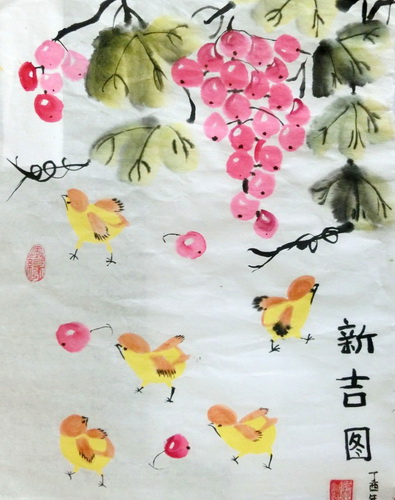 新吉图
丁酉年